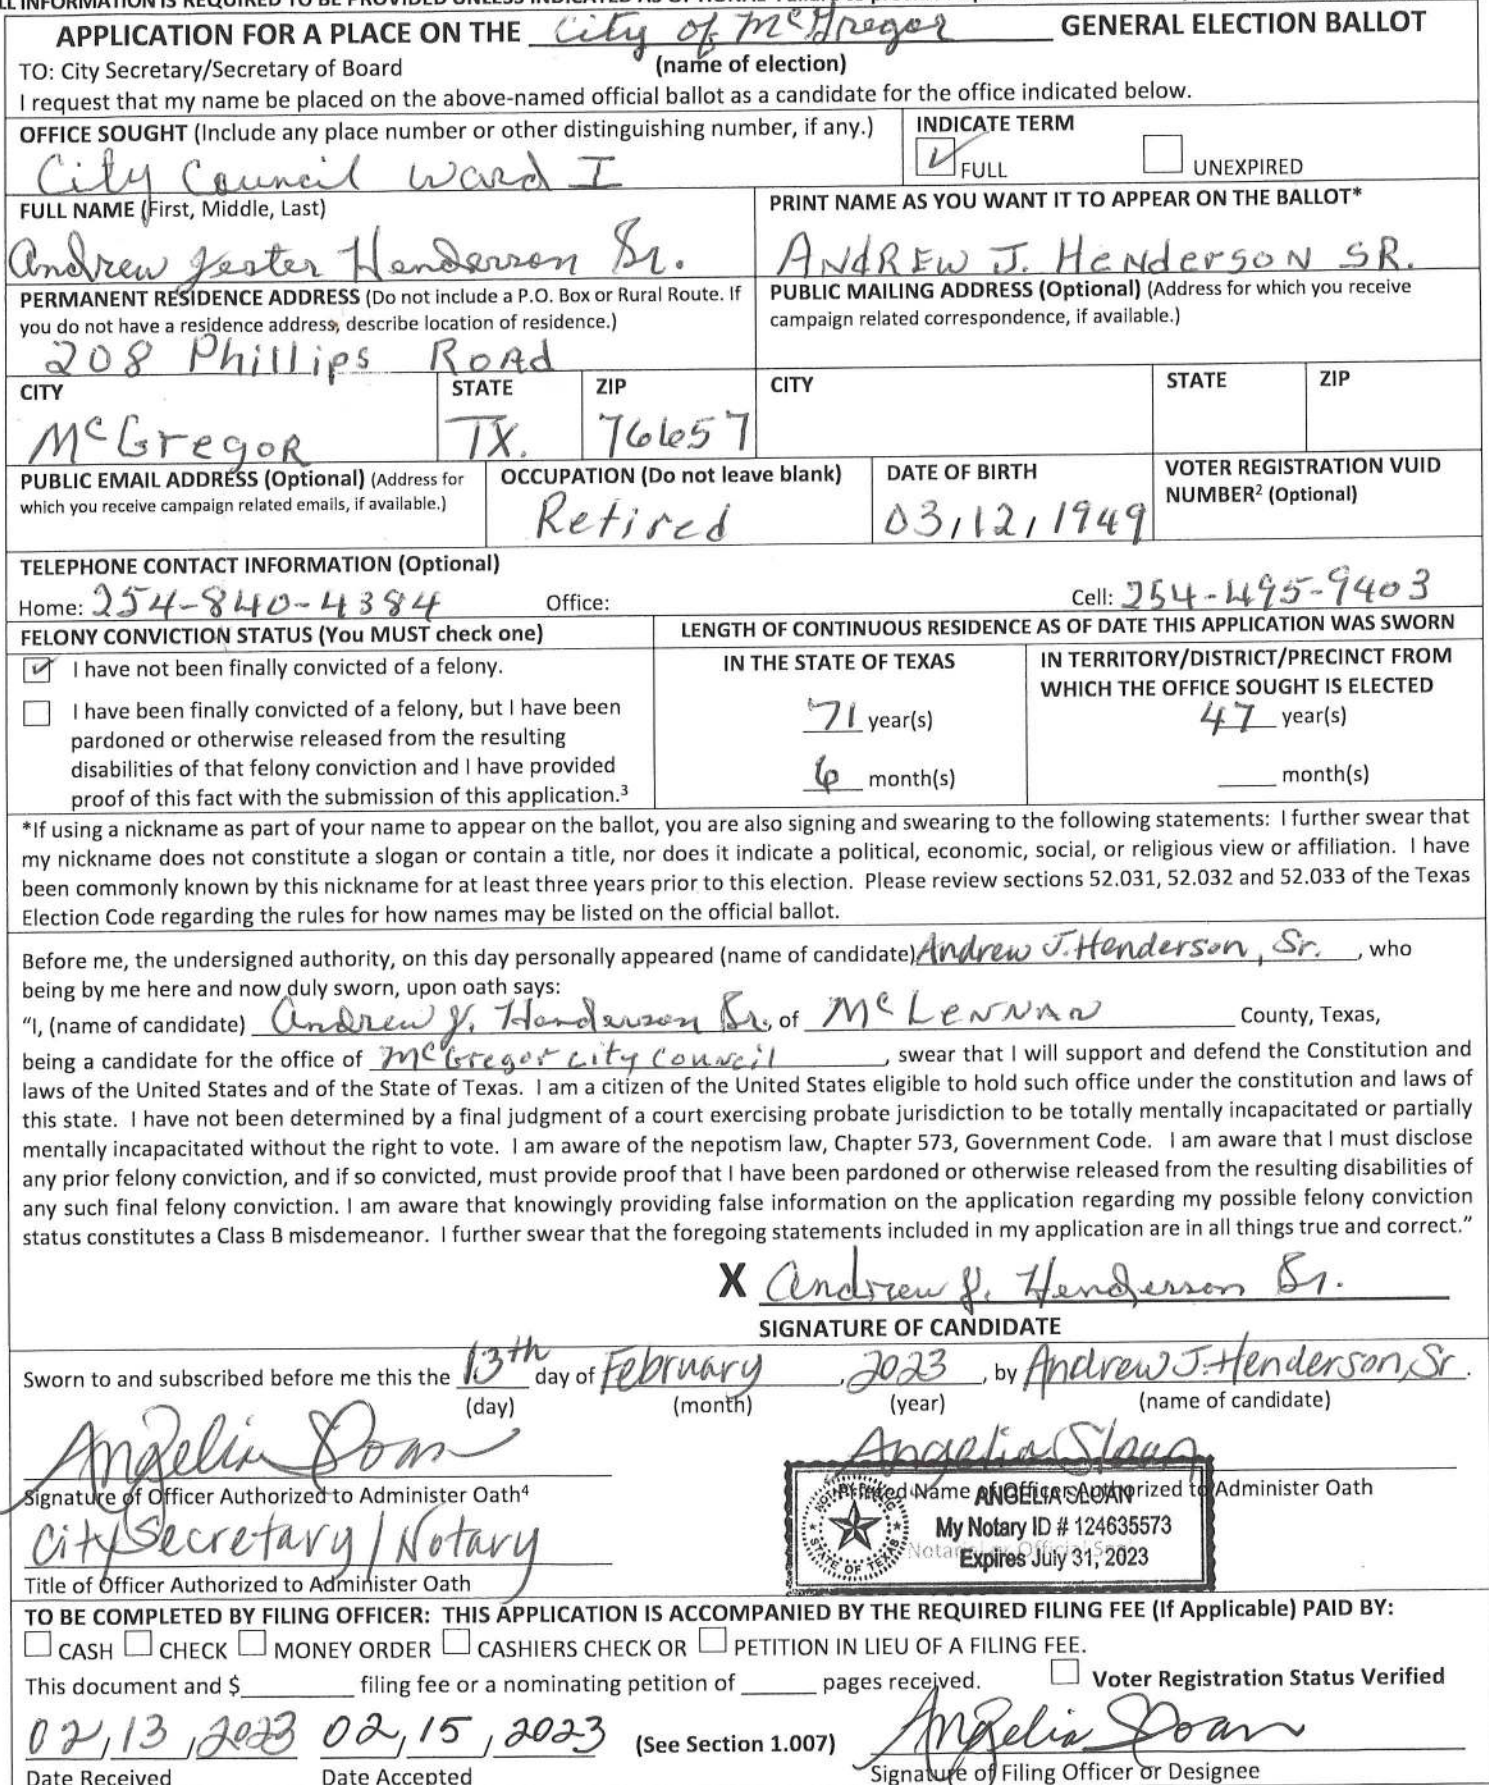 APPLICATION FOR A PLACE ON THE City of McGregor GENERAL ELECTION BALLOT
TO: City Secretary/Secretary of Board (name of election)
I request that my name be placed on the above-named official ballot as a candidate for the office indicated below.
OFFICE SOUGHT (Include any place number or other distinguishing number, if any.)
City Council Ward I
INDICATE TERM
FULL UNEXPIRED
FULL NAME (First, Middle, Last)
Andrew Jester Henderson Sr.
PRINT NAME AS YOU WANT IT TO APPEAR ON THE BALLOT*
ANdREW J. HeNdersON SR.
PERMANENT RESIDENCE ADDRESS (Do not include a P.O. Box or Rural Route. If
you do not have a residence address, describe location of residence.)
208 Phillips ROAd
PUBLIC MAILING ADDRESS (Optional) (Address for which you receive
campaign related correspondence, if available.)
CITY STATE ZIP CITY STATE ZIP
McGregoR TX. 76657
PUBLIC EMAIL ADDRESS (Optional) (Address for
which you receive campaign related emails, if available.)
OCCUPATION (Do not leave blank)
Retired
DATE OF BIRTH
03/12/1949
VOTER REGISTRATION VUID
NUMBER² (Optional)
TELEPHONE CONTACT INFORMATION (Optional)
Home: 254-840-4384 Office: Cell: 254-495-9403
FELONY CONVICTION STATUS (You MUST check one)
I have not been finally convicted of a felony.
I have been finally convicted of a felony, but I have been
pardoned or otherwise released from the resulting
disabilities of that felony conviction and I have provided
proof of this fact with the submission of this application.³
LENGTH OF CONTINUOUS RESIDENCE AS OF DATE THIS APPLICATION WAS SWORN
IN THE STATE OF TEXAS
71 year(s)
6 month(s)
IN TERRITORY/DISTRICT/PRECINCT FROM
WHICH THE OFFICE SOUGHT IS ELECTED
47 year(s)
month(s)
*If using a nickname as part of your name to appear on the ballot, you are also signing and swearing to the following statements: I further swear that
my nickname does not constitute a slogan or contain a title, nor does it indicate a political, economic, social, or religious view or affiliation. I have
been commonly known by this nickname for at least three years prior to this election. Please review sections 52.031, 52.032 and 52.033 of the Texas
Election Code regarding the rules for how names may be listed on the official ballot.
Before me, the undersigned authority, on this day personally appeared (name of candidate) Andrew J. Henderson, Sr., who
being by me here and now duly sworn, upon oath says:
“I, (name of candidate) Andrew J. Henderson Sr., of McLennan County, Texas,
being a candidate for the office of McGregor City Council, swear that I will support and defend the Constitution and
laws of the United States and of the State of Texas. I am a citizen of the United States eligible to hold such office under the constitution and laws of
this state. I have not been determined by a final judgment of a court exercising probate jurisdiction to be totally mentally incapacitated or partially
mentally incapacitated without the right to vote. I am aware of the nepotism law, Chapter 573, Government Code. I am aware that I must disclose
any prior felony conviction, and if so convicted, must provide proof that I have been pardoned or otherwise released from the resulting disabilities of
any such final felony conviction. I am aware that knowingly providing false information on the application regarding my possible felony conviction
status constitutes a Class B misdemeanor. I further swear that the foregoing statements included in my application are in all things true and correct.”
X Andrew J. Henderson Sr.
SIGNATURE OF CANDIDATE
Sworn to and subscribed before me this the 13th day of February, 2023, by Andrew J. Henderson, Sr.
(day) (month) (year) (name of candidate)
Angelia Sloan Angelia Sloan
Signature of Officer Authorized to Administer Oath⁴ Printed Name of Officer Authorized to Administer Oath
NOTARY PUBLIC STATE OF TEXAS
ANGELIA SLOAN
My Notary ID # 124635573
Expires July 31, 2023
City Secretary/Notary
Title of Officer Authorized to Administer Oath
TO BE COMPLETED BY FILING OFFICER: THIS APPLICATION IS ACCOMPANIED BY THE REQUIRED FILING FEE (If Applicable) PAID BY:
CASH CHECK MONEY ORDER CASHIERS CHECK OR PETITION IN LIEU OF A FILING FEE.
This document and $ filing fee or a nominating petition of pages received. Voter Registration Status Verified
02/13/2023 02/15/2023 (See Section 1.007) Angelia Sloan
Date Received Date Accepted Signature of Filing Officer or Designee